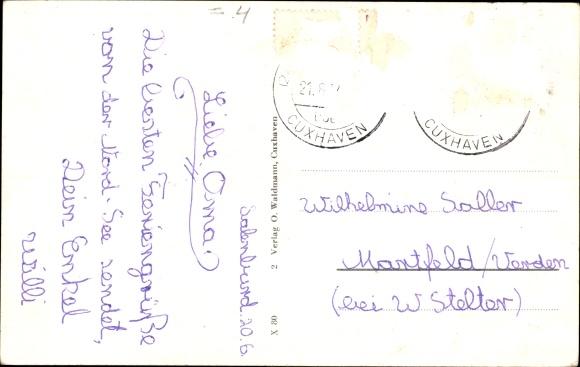 =.4
Sahlenburd. 20.6.
Liebe Oma!
Die besten Feriengrüße
von der Nord-See sendet,
Dein Enkel
Willi
X 80 2 Verlag O. Waldmann, Cuxhaven
21.6.
CUXHAVEN
CUXHAVEN
Wilhelmine Saller
Martfeld/Verden
(bei W Stelter)